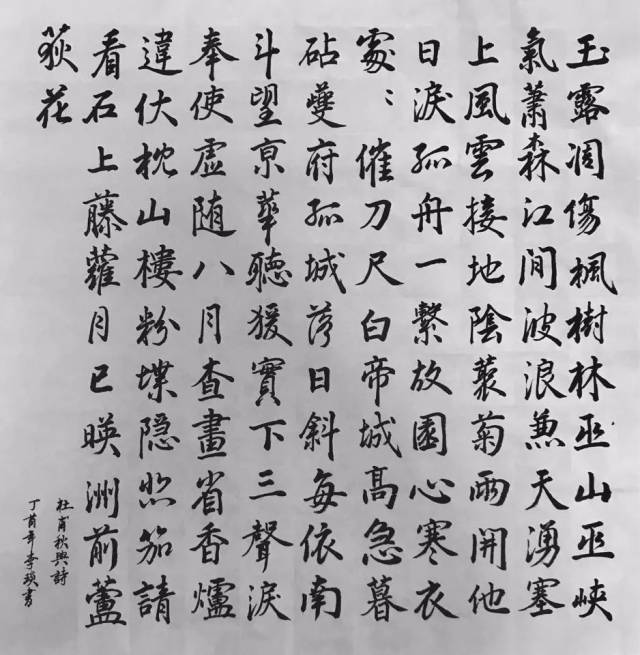 玉露凋傷楓樹林巫山巫峽
氣蕭森江間波浪兼天湧塞
上風雲接地陰叢菊兩開他
日淚孤舟一繫故園心寒衣
處〻催刀尺白帝城高急暮
砧夔府孤城落日斜每依南
斗望亰華聽猨實下三聲淚
奉使虛随八月查畫省香爐
違伏枕山樓粉堞隐悲笳請
看石上藤蘿月已暎洲前蘆
荻花
杜甫秋興詩
丁酉年李瑛書